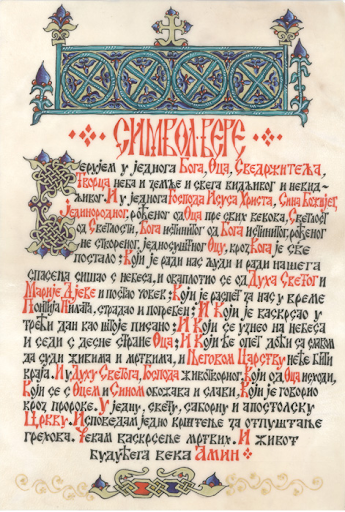 СИМВОЛ ВЕРЕ
Верујем у једнога Бога, Оца, Сведржитеља,
Творца неба и земље и свега видљивог и невид-
живог. И у једнога Господа Исуса Христа, Сина Божијег,
Јединородног, рођеног од Оца пре свих векова, Светлост
од Светлости, Бога истинитог од Бога истинитог, рођеног
не створеног, једносуштног Оцу, кроз Кога је све
постало; Који је ради нас људи и ради нашега
спасења сишао с небеса, и оваплотио се од Духа Светог и
Марије Дјеве и постао човек; Који је распет за нас у време
Понтија Пилата, страдао и погребен; И Који је васкрсао у
трећи дан као што је писано; И Који се узнео на небеса
и седи с десне стране Оца; И Који ће опет доћи са славом
да суди живима и мртвима, и Његовом Царству неће бити
краја. И у Духу Светога, Господа животворног, Који од Оца исходи,
Који се с Оцем и Сином обожава и слави, Који је говорио
кроз пророке. У једну, свету, саборну и апостолску
Цркву. Исповедам једно крштење за отпуштање
грехова. Чекам васкрсење мртвих. И живот
будућега века Амин